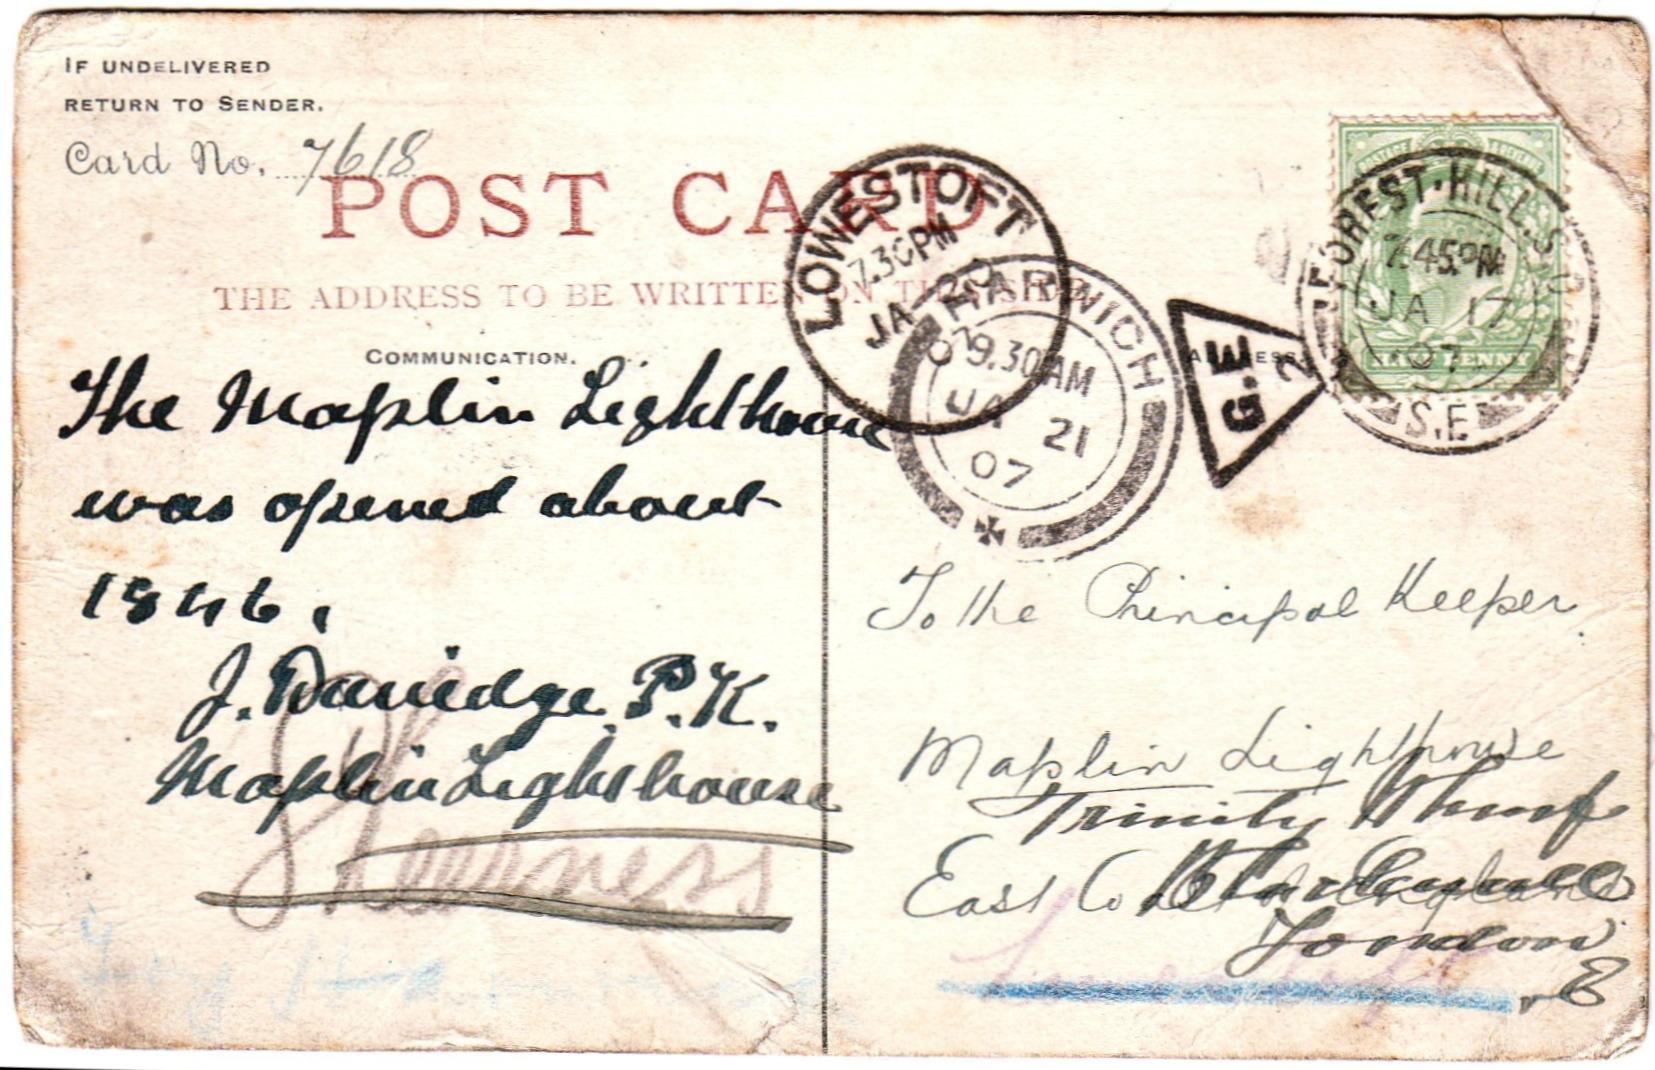 IF UNDELIVERED
RETURN TO SENDER.
Card No. 7618
POST CARD
THE ADDRESS TO BE WRITTEN ON THIS SIDE
COMMUNICATION.
The Maplin Lighthouse
was opened about
1846.
J. Daviedge. P.K.
Maplin Lighthouse
Sheerness
LOWESTOFT
7.30PM
JA
07
HARWICH
9.30AM
JA 21
07
G.E
2
ADDRESS.
FOREST-HILL.S.O
7.45PM
JA 17
07
S.E
POSTAGE
HALF PENNY
To the Principal Keeper
Maplin Lighthouse
Trinity Wharf
East Coast of England
Blackwall
London
E